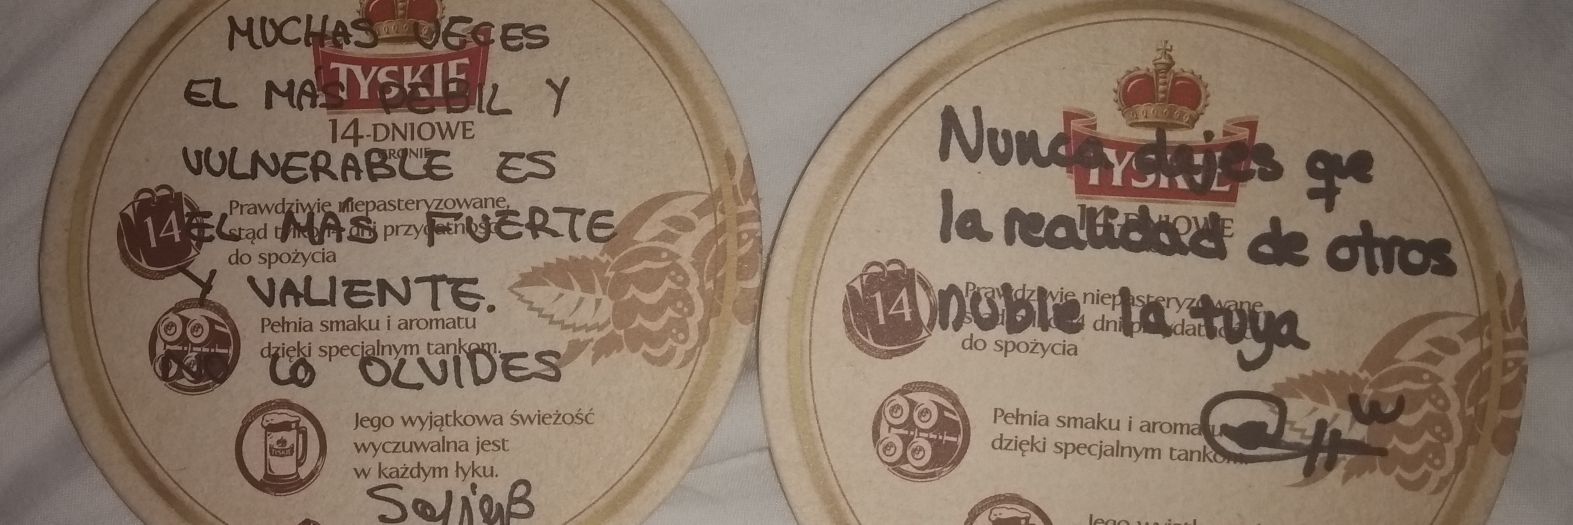 MUCHAS VECES
EL MAS DEBIL Y
VULNERABLE ES
EL MÁS FUERTE
Y VALIENTE.
NO LO OLVIDES
TYSKIE
14-DNIOWE
14
Prawdziwie niepasteryzowane,
stąd dni przydatności
do spożycia
Pełnia smaku i aromatu
dzięki specjalnym tankom.
Jego wyjątkowa świeżość
wyczuwalna jest
w każdym łyku.
Nunca dejes que
la realidad de otros
nuble la tuya
TYSKIE
14-DNIOWE
14
Prawdziwie niepasteryzowane
dni
do spożycia
Pełnia smaku i aromatu
dzięki specjalnym tankom.
Jego